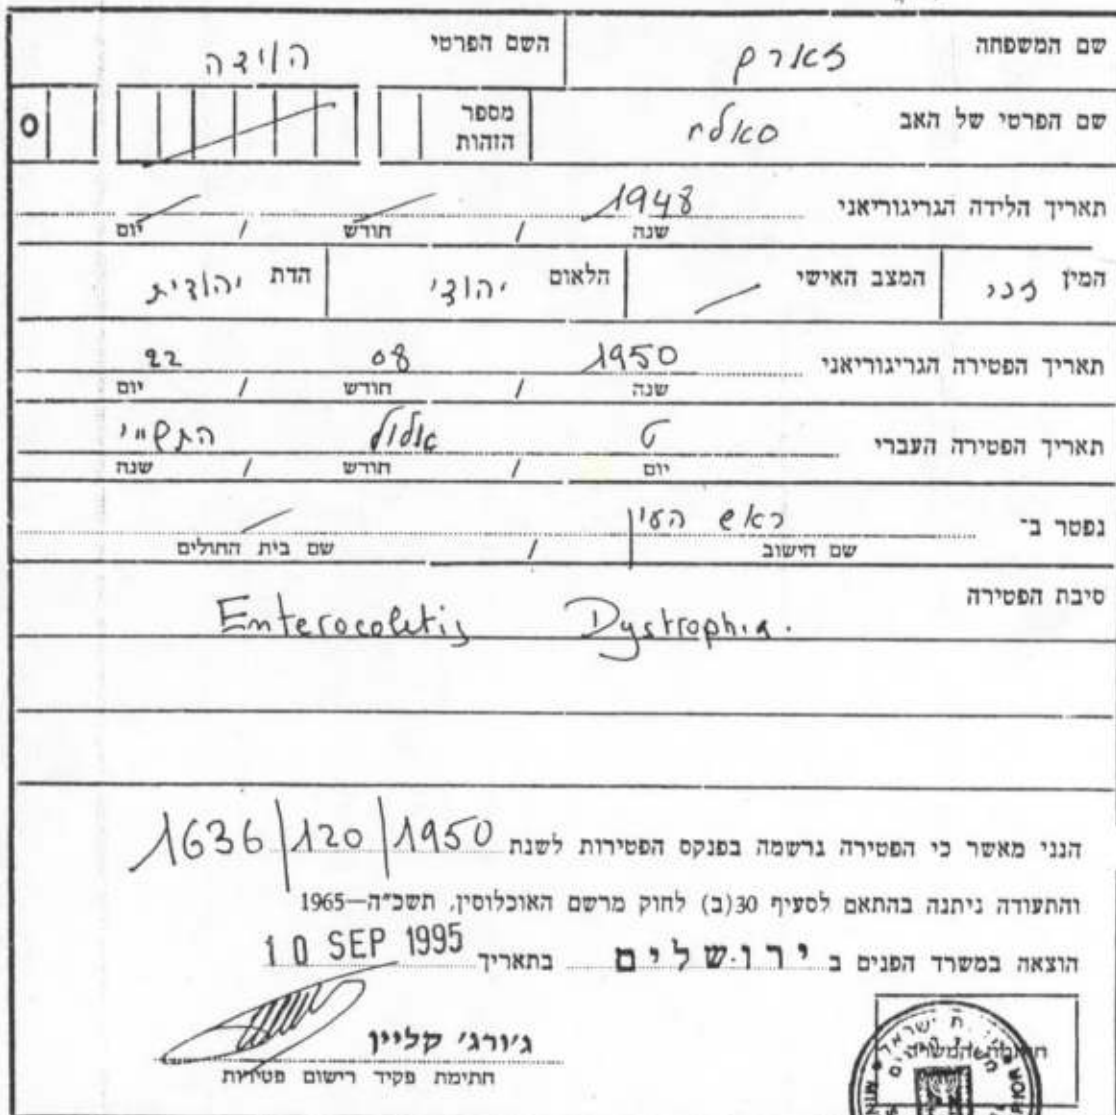 שם המשפחה זארם השם הפרטי הוידה
שם הפרטי של האב סאלח מספר הזהות 0
תאריך הלידה הגריגוריאני 1948
שנה / חודש / יום
המין זכר המצב האישי הלאום יהודי הדת יהודית
תאריך הפטירה הגריגוריאני 1950 08 22
שנה / חודש / יום
תאריך הפטירה העברי ט אלול התש"י
יום / חודש / שנה
נפטר ב־ ראש העין
שם הישוב / שם בית החולים
סיבת הפטירה
Enterocoletis Dystrophia.
הנני מאשר כי הפטירה נרשמה בפנקס הפטירות לשנת 1950 | 120 | 1636
והתעודה ניתנה בהתאם לסעיף 30(ב) לחוק מרשם האוכלוסין, תשכ"ה—1965
הוצאה במשרד הפנים ב ירושלים בתאריך 10 SEP 1995
ג'ורג' קליין
חתימת פקיד רישום פטירות